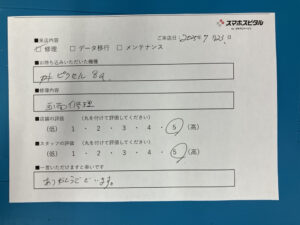 スマホスピタル
■来店内容
ご来店日: 2025年 7月25日
修理 □ データ移行 □ メンテナンス
■お持ち込みいただいた機種
ピクセル 8a
■修理内容
修理
■店舗の評価 (丸を付けて評価してください)
(低) 1 ・ 2 ・ 3 ・ 4 ・ 5 (高)
■スタッフの評価 (丸を付けて評価してください)
(低) 1 ・ 2 ・ 3 ・ 4 ・ 5 (高)
■一言いただけますと幸いです
ありがとうございます。